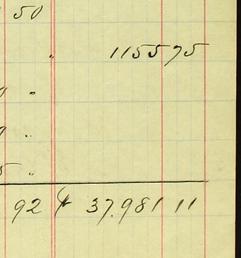 50
" 115575
"
"
5 "
92 $ 37.981 11